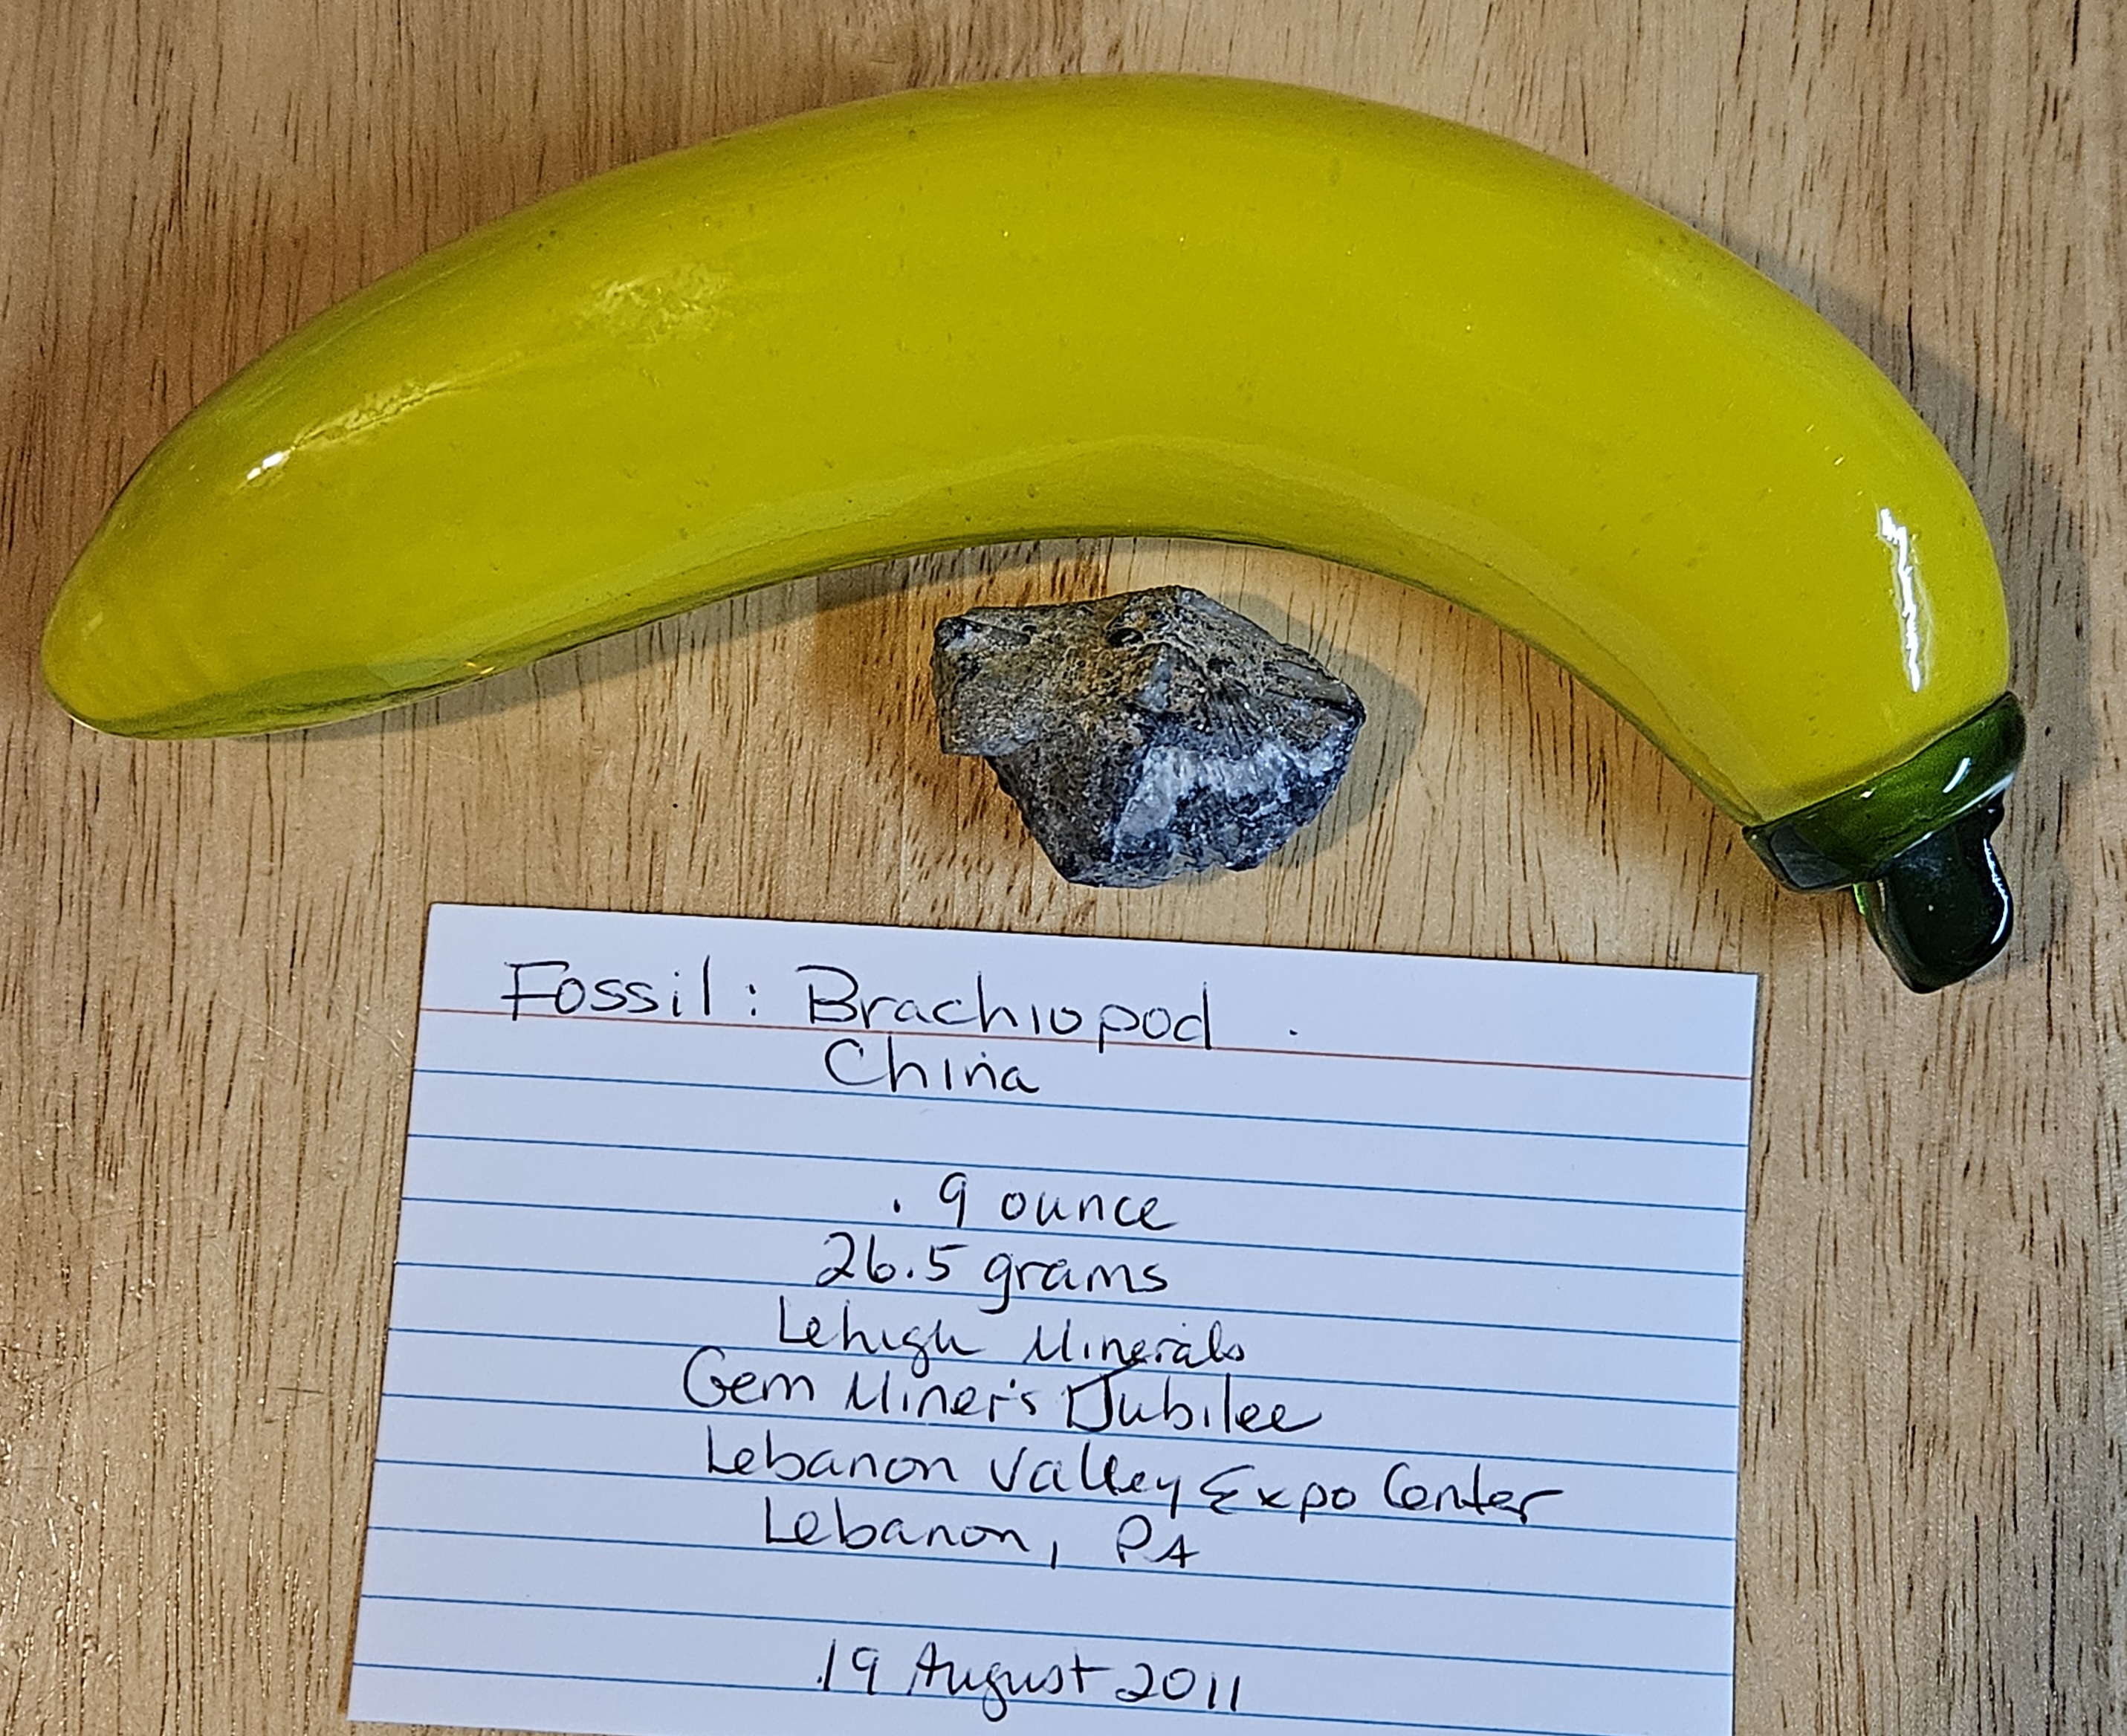 Fossil: Brachiopod.
China
.9 ounce
26.5 grams
Lehigh Minerals
Gem Miner's Jubilee
Lebanon Valley Expo Center
Lebanon, PA
19 August 2011